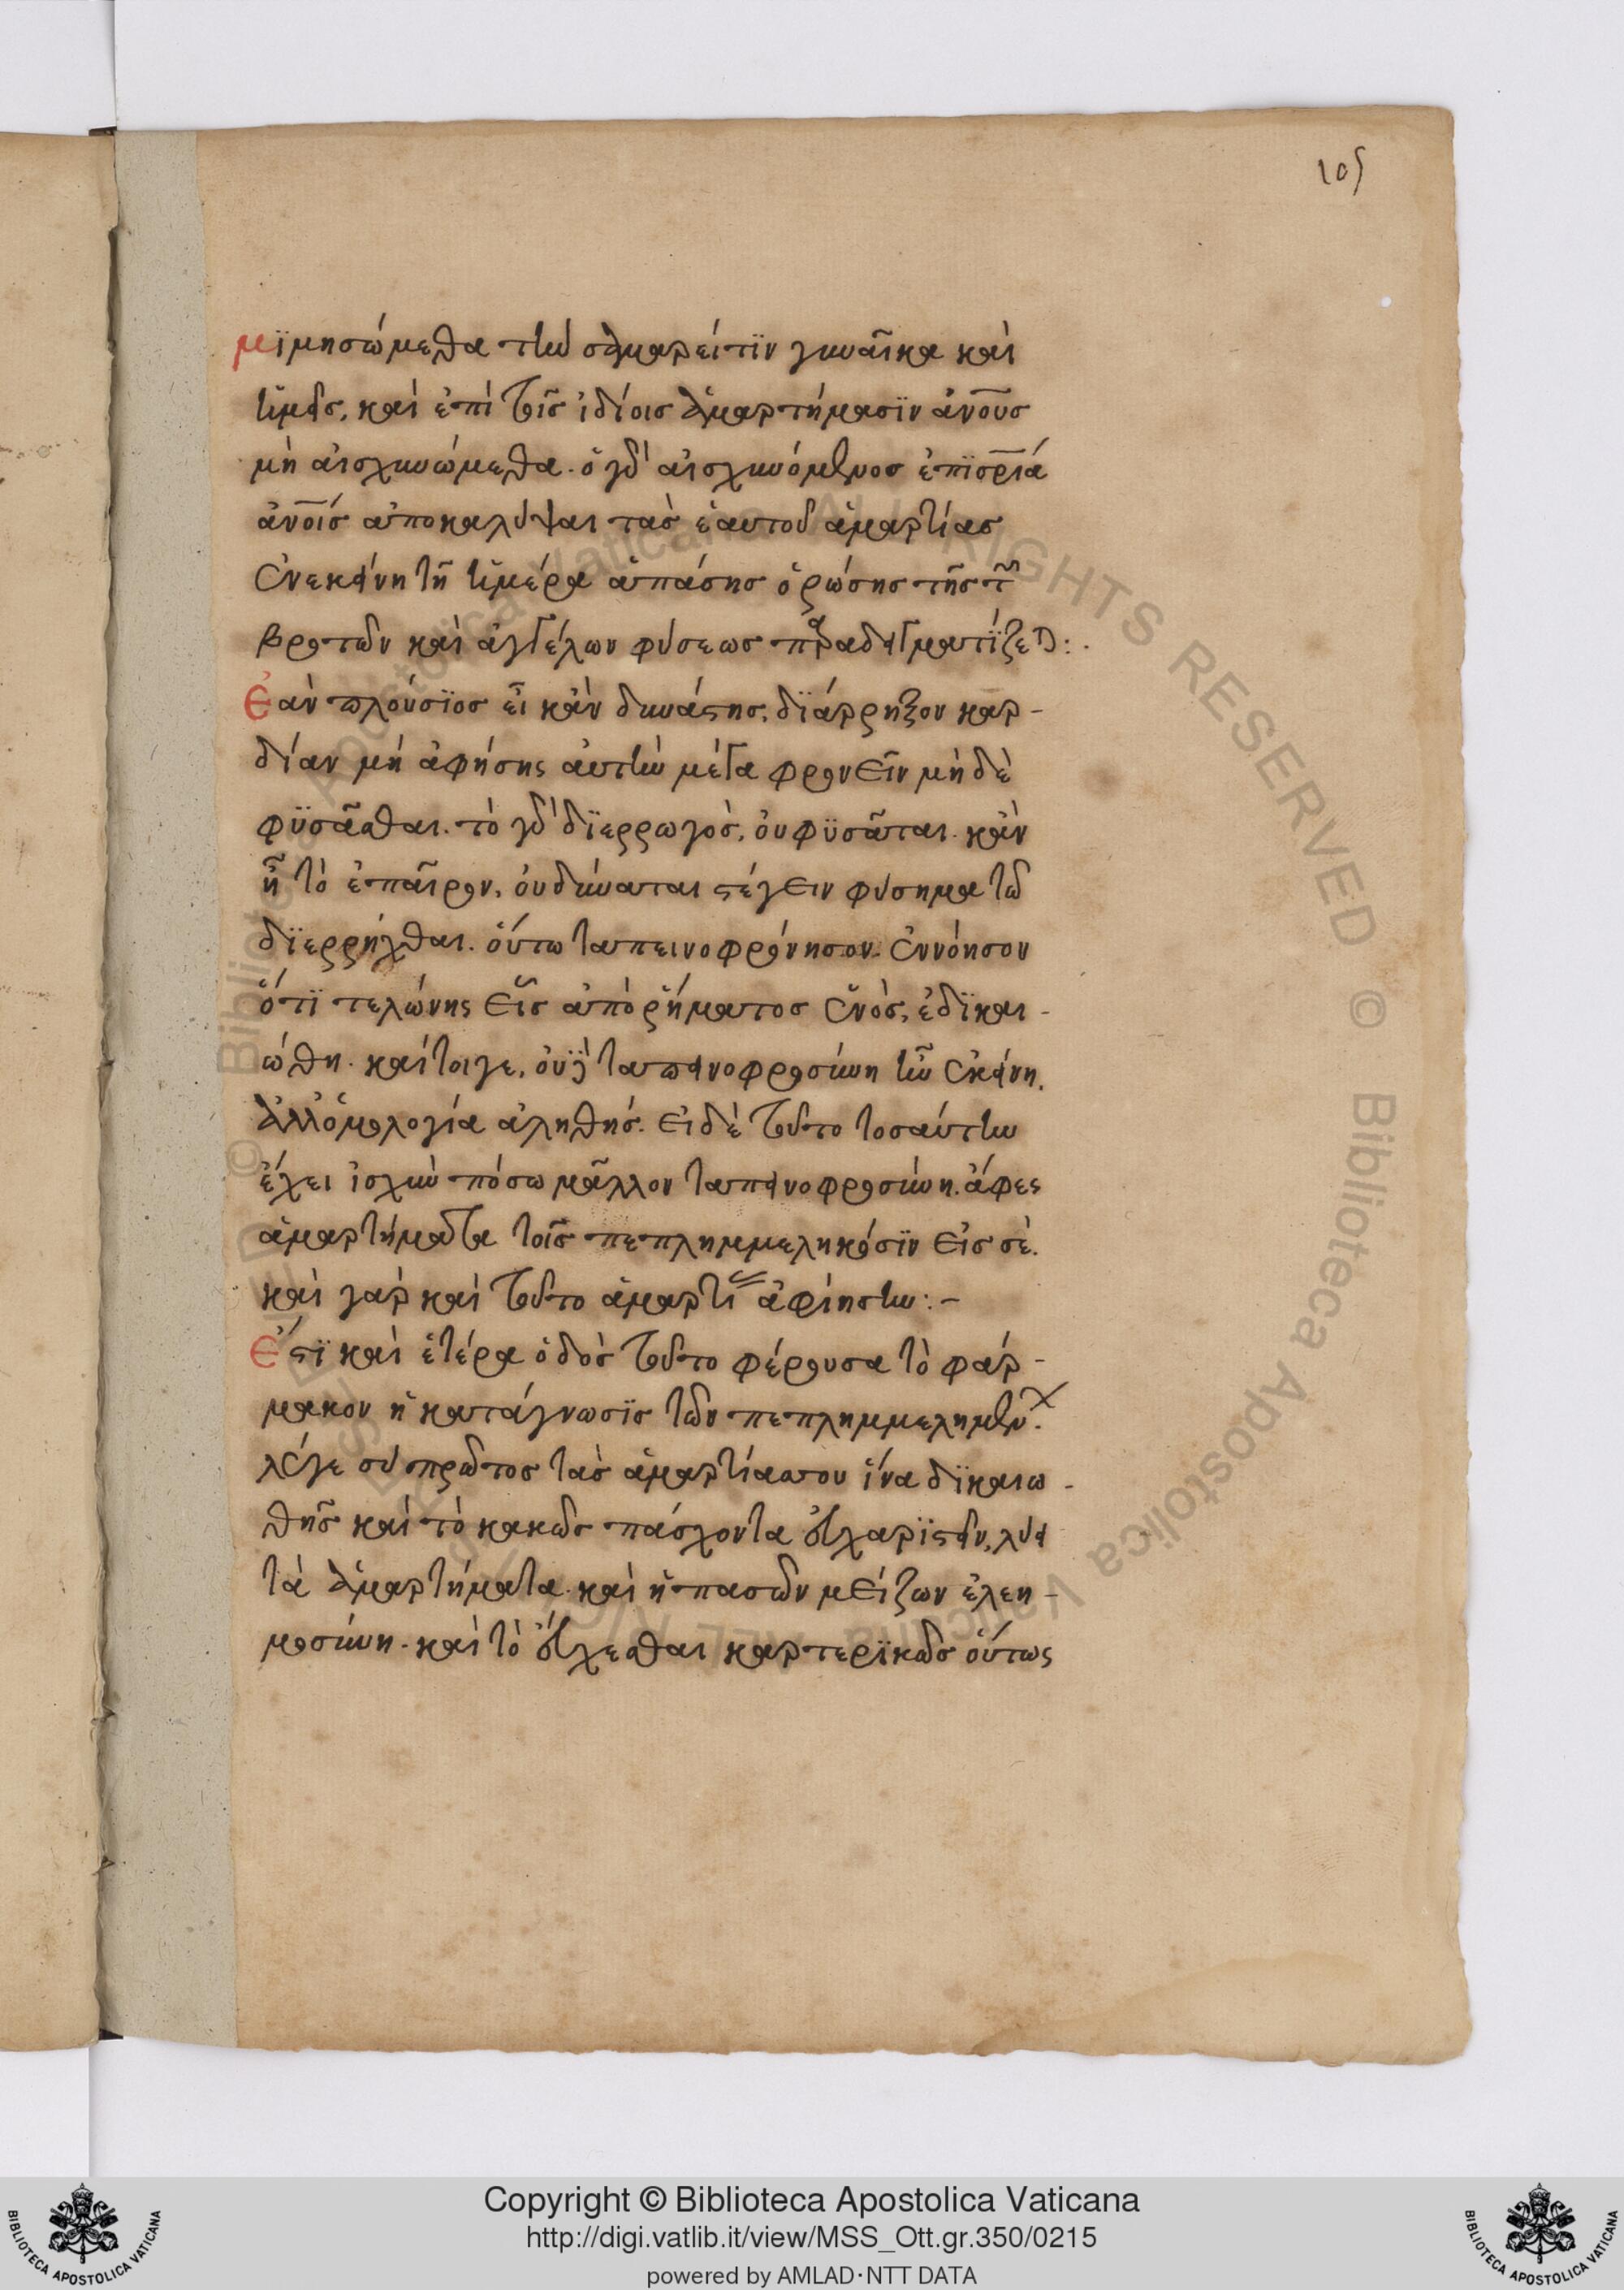 105
μϊμησώμεθα τὴν σαμαρείτϊν γυναῖκα καὶ
ἡμεῖς, καὶ ἐπὶ τοῖς ἰδίοις ἁμαρτήμασϊν ἀν̅ους
μὴ αἰσχυνώμεθα. ὁ γὰρ αἰσχυνόμενος ἐπϊσ̅ριά
ἀν̅οίς ἀποκαλύψαι τὰς ἑαυτοῦ ἁμαρτίας
ἐνεκείνη τῆ ἡμέρα ἁπάσης ὁρώσης τῆς τῶν
βροτῶν καὶ ἀγγέλων φύσεως παραδειγματίζεται:.
Ἐὰν πλούσϊος εἶ κἂν δυνάστης, δϊάρρηξον καρ-
δίαν μὴ ἀφήσης αὐτὴν μέγα φρονεῖν μὴ δὲ
φϋσᾶσθαι. τὸ γὰρ δϊερρωγὸς, οὐ φϋσᾶται. κἂν
ῆ τὸ ἐπαῖρον, οὐ δύναται στέγειν φύσημα τῶ
δϊερρήχθαι. οὕτω ταπεινοφρόνησον. ἐννόησον
ὅτϊ τελώνης εἷς ἀπὸ ῥήματος ἑνὸς, ἐδϊκαι-
ώθη. καίτοιγε, οὐχϊ ταπεινοφροσύνη ἦν ἐκείνη.
ἀλλ' ὁμολογία ἀληθής. εἰ δὲ τοῦτο τοσαύτην
ἔχει ἰσχὺν πόσω μᾶλλον ταπεινοφροσύνη. ἄφες
ἁμαρτήματα τοῖς πεπλημμεληκόσϊν εἰς σὲ.
καὶ γὰρ καὶ τοῦτο ἁμαρτίας ἀφίησιν:-
Ἔστϊ καὶ ἑτέρα ὁδὸς τοῦτο φέρουσα τὸ φάρ-
μακον ἡ κατάγνωσϊς τῶν πεπλημμελημένων.
λέγε σὺ πρῶτος τὰς ἁμαρτίας σου ἵνα δϊκαιω-
θῆς καὶ τὸ κακῶς πάσχοντα εὐχαρϊστεῖν, λύει
τὰ ἁμαρτήματα. καὶ ἡ πασῶν μείζων ἐλεη-
μοσύνη. καὶ τὸ εὔχεσθαι καρτερϊκῶς οὕτως
© Biblioteca Apostolica Vaticana ALL RIGHTS RESERVED
Copyright © Biblioteca Apostolica Vaticana
http://digi.vatlib.it/view/MSS_Ott.gr.350/0215
powered by AMLAD·NTT DATA
BIBLIOTECA APOSTOLICA VATICANA
BIBLIOTECA APOSTOLICA VATICANA